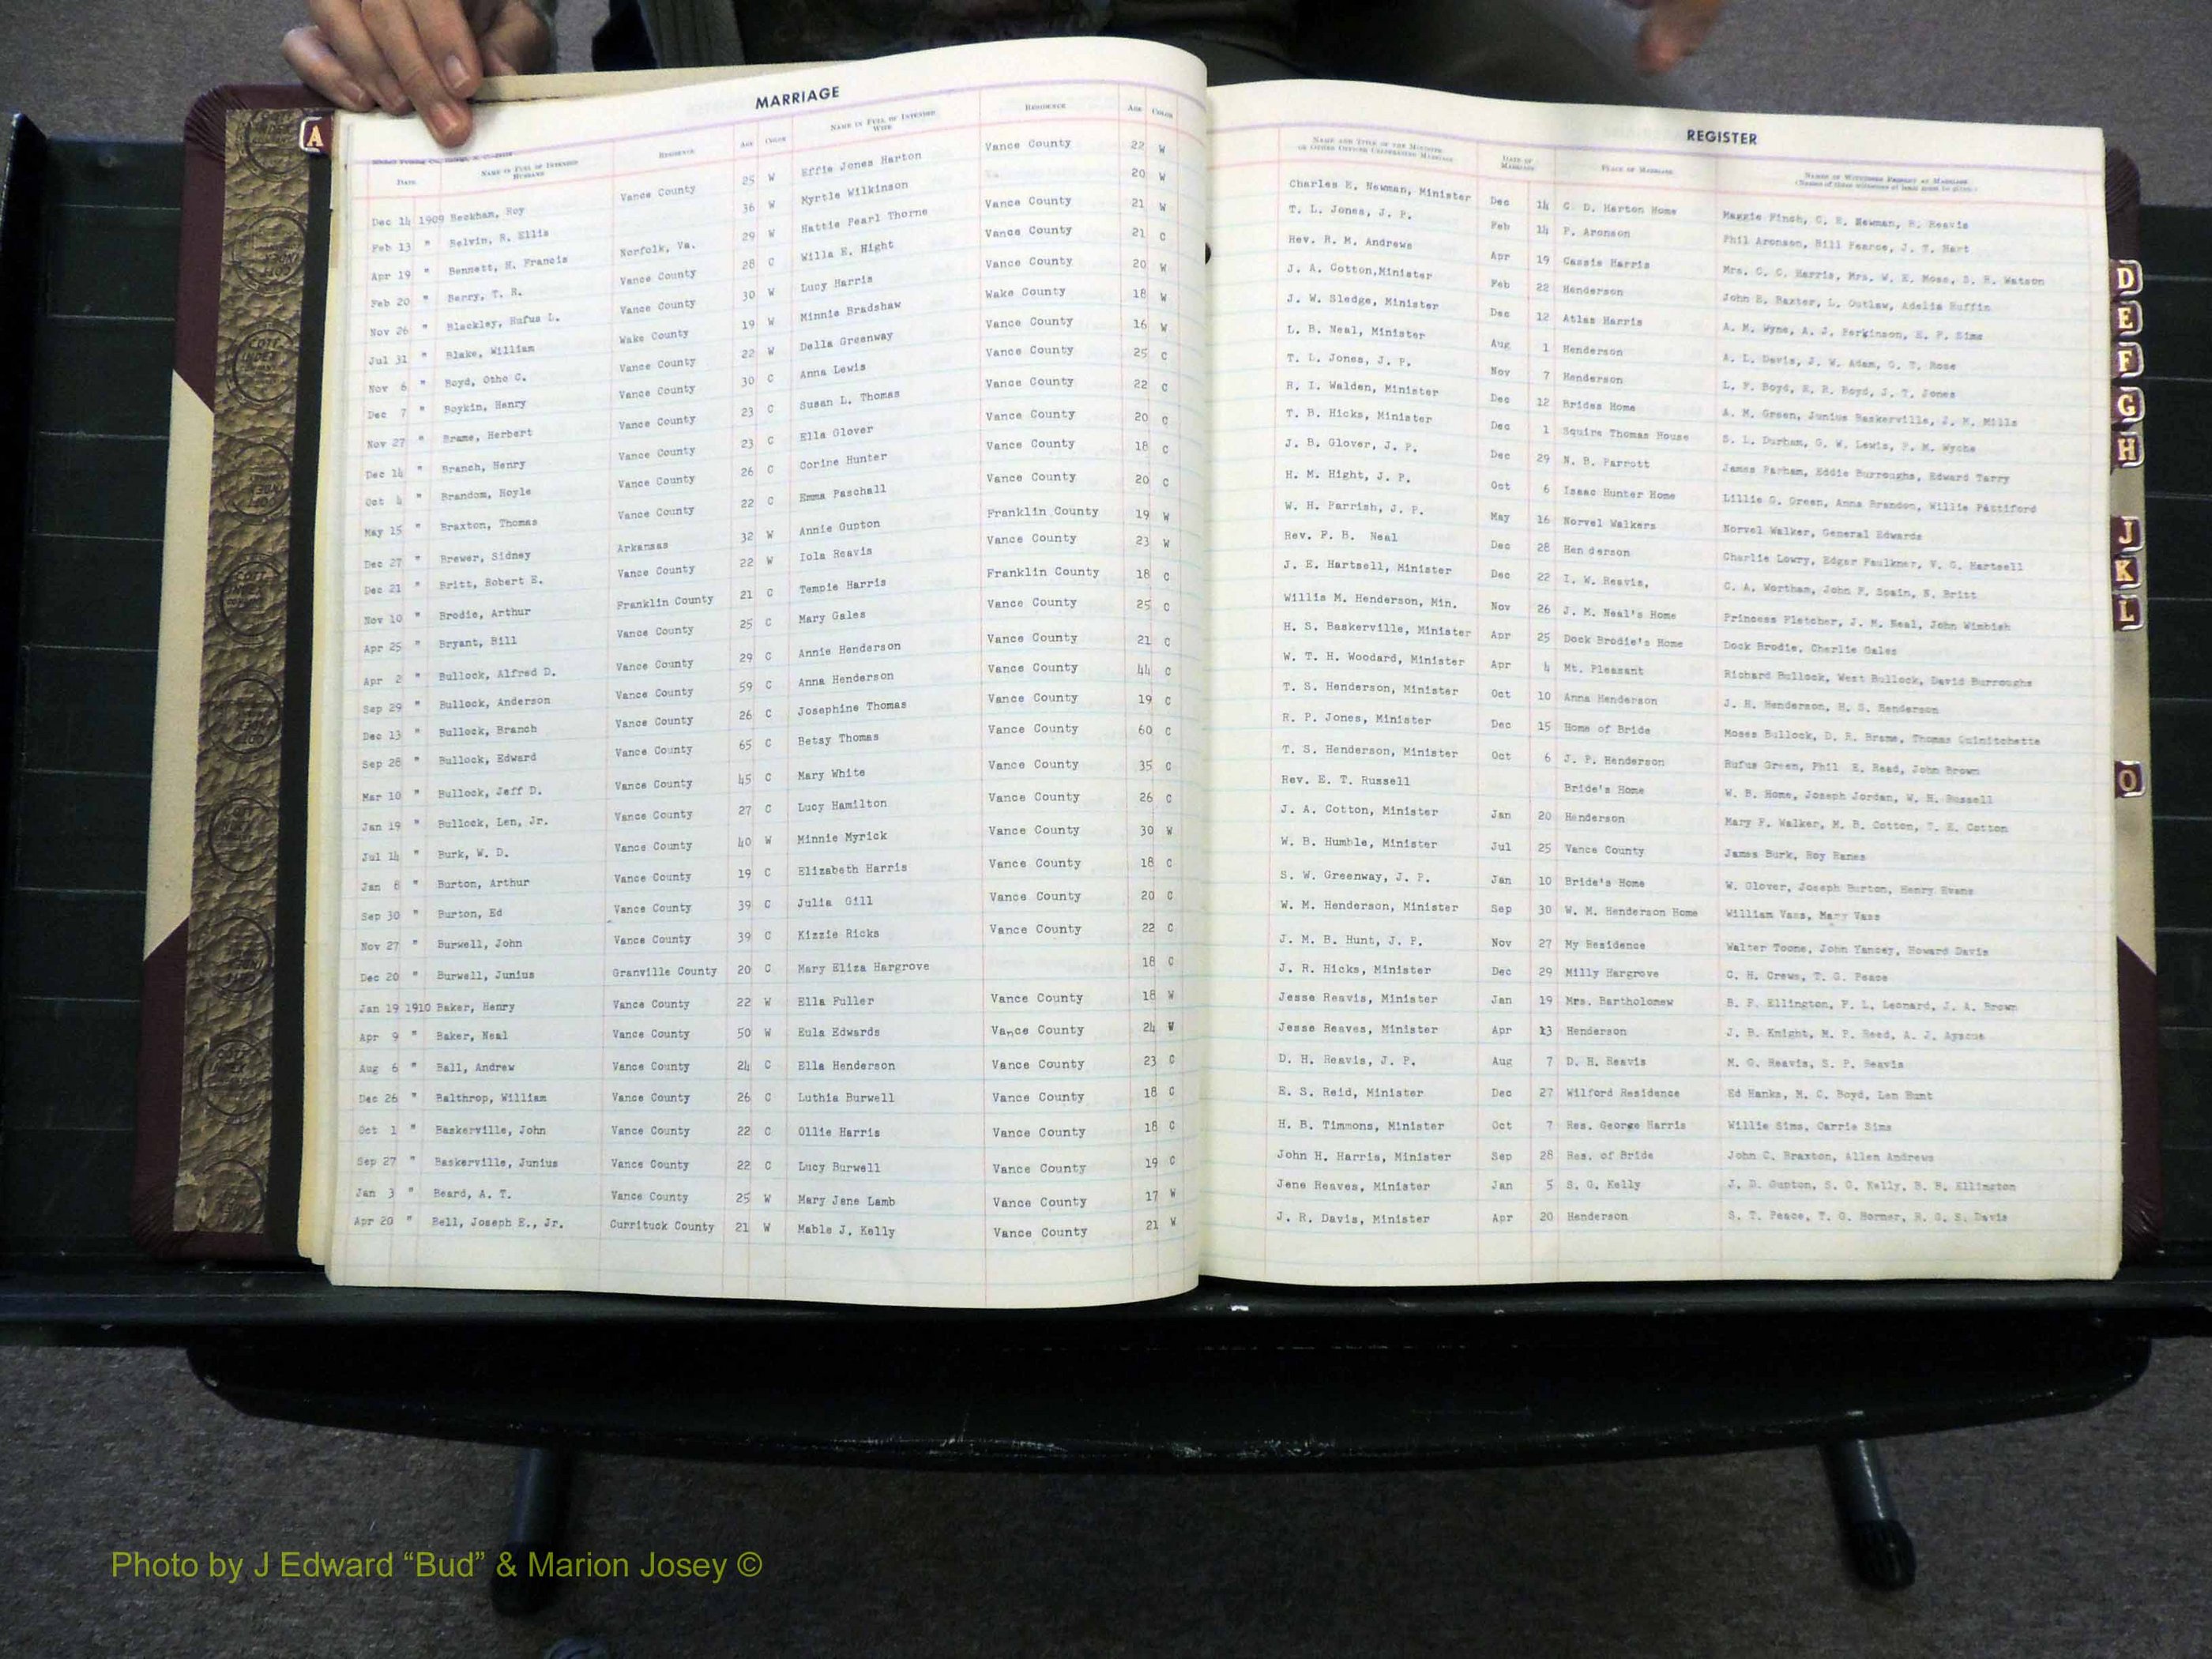 MARRIAGE
NAME IN FULL OF INTENDED HUSBAND RESIDENCE AGE COLOR NAME IN FULL OF INTENDED WIFE RESIDENCE AGE COLOR
DATE
Dec 14 1909 Beckham, Roy Vance County 25 W Effie Jones Harton Vance County 22 W
Feb 13 " Belvin, R. Ellis 36 W Myrtle Wilkinson 20 W
Apr 19 " Bennett, H. Francis Norfolk, Va. 29 W Hattie Pearl Thorne Vance County 21 W
Feb 20 " Berry, T. R. Vance County 28 C Willa E. Hight Vance County 21 C
Nov 26 " Blackley, Rufus L. Vance County 30 W Lucy Harris Vance County 20 W
Jul 31 " Blake, William Wake County 19 W Minnie Bradshaw Wake County 18 W
Nov 6 " Boyd, Otho C. Vance County 22 W Della Greenway Vance County 16 W
Dec 7 " Boykin, Henry Vance County 30 C Anna Lewis Vance County 25 C
Nov 27 " Brame, Herbert Vance County 23 C Susan L. Thomas Vance County 22 C
Dec 14 " Branch, Henry Vance County 23 C Ella Glover Vance County 20 C
Oct 4 " Brandom, Hoyle Vance County 26 C Corine Hunter Vance County 18 C
May 15 " Braxton, Thomas Vance County 22 C Emma Paschall Vance County 20 C
Dec 27 " Brewer, Sidney Arkansas 32 W Annie Gupton Franklin County 19 W
Dec 21 " Britt, Robert E. Vance County 22 W Iola Reavis Vance County 23 W
Nov 10 " Brodie, Arthur Franklin County 21 C Tempie Harris Franklin County 18 C
Apr 25 " Bryant, Bill Vance County 25 C Mary Gales Vance County 25 C
Apr 2 " Bullock, Alfred D. Vance County 29 C Annie Henderson Vance County 21 C
Sep 29 " Bullock, Anderson Vance County 59 C Anna Henderson Vance County 44 C
Dec 13 " Bullock, Branch Vance County 26 C Josephine Thomas Vance County 19 C
Sep 28 " Bullock, Edward Vance County 65 C Betsy Thomas Vance County 60 C
Mar 10 " Bullock, Jeff D. Vance County 45 C Mary White Vance County 35 C
Jan 19 " Bullock, Len, Jr. Vance County 27 C Lucy Hamilton Vance County 26 C
Jul 14 " Burk, W. D. Vance County 40 W Minnie Myrick Vance County 30 W
Jan 8 " Burton, Arthur Vance County 19 C Elizabeth Harris Vance County 18 C
Sep 30 " Burton, Ed Vance County 39 C Julia Gill Vance County 20 C
Nov 27 " Burwell, John Vance County 39 C Kizzie Ricks Vance County 22 C
Dec 20 " Burwell, Junius Granville County 20 C Mary Eliza Hargrove 18 C
Jan 19 1910 Baker, Henry Vance County 22 W Ella Fuller Vance County 18 W
Apr 9 " Baker, Neal Vance County 50 W Eula Edwards Vance County 24 W
Aug 6 " Ball, Andrew Vance County 24 C Ella Henderson Vance County 23 C
Dec 26 " Balthrop, William Vance County 26 C Luthia Burwell Vance County 18 C
Oct 1 " Baskerville, John Vance County 22 C Ollie Harris Vance County 18 C
Sep 27 " Baskerville, Junius Vance County 22 C Lucy Burwell Vance County 19 C
Jan 3 " Beard, A. T. Vance County 25 W Mary Jane Lamb Vance County 17 W
Apr 20 " Bell, Joseph E., Jr. Currituck County 21 W Mable J. Kelly Vance County 21 W
REGISTER
NAME AND TITLE OF THE MINISTER OR OTHER OFFICER CELEBRATING MARRIAGE DATE OF MARRIAGE PLACE OF MARRIAGE NAMES OF WITNESSES PRESENT AT MARRIAGE
Charles E. Newman, Minister Dec 14 C. D. Harton Home Maggie Finch, C. E. Newman, R. Reavis
T. L. Jones, J. P. Feb 14 P. Aronson Phil Aronson, Bill Pearce, J. T. Hart
Rev. R. M. Andrews Apr 19 Cassie Harris Mrs. C. C. Harris, Mrs. W. E. Moss, S. R. Watson
J. A. Cotton,Minister Feb 22 Henderson John E. Baxter, L. Outlaw, Adelia Ruffin
J. W. Sledge, Minister Dec 12 Atlas Harris A. M. Wyne, A. J. Perkinson, E. P. Sims
L. B. Neal, Minister Aug 1 Henderson A. L. Davis, J. W. Adam, G. T. Rose
T. L. Jones, J. P. Nov 7 Henderson L. F. Boyd, E. R. Boyd, J. T. Jones
R. I. Walden, Minister Dec 12 Brides Home A. M. Green, Junius Baskerville, J. H. Mills
T. B. Hicks, Minister Dec 1 Squire Thomas House S. L. Durham, G. W. Lewis, P. M. Wyche
J. B. Glover, J. P. Dec 29 N. B. Parrott James Parham, Eddie Burroughs, Edward Terry
H. M. Hight, J. P. Oct 6 Isaac Hunter Home Lillie G. Green, Anna Brandon, Willie Pettiford
W. H. Parrish, J. P. May 16 Norvel Walkers Norvel Walker, General Edwards
Rev. F. B. Neal Dec 28 Hen derson Charlie Lowry, Edgar Faulkner, V. G. Hartsell
J. E. Hartsell, Minister Dec 22 I. W. Reavis, C. A. Wortham, John F. Spain, N. Britt
Willis M. Henderson, Min. Nov 26 J. M. Neal's Home Princess Fletcher, J. M. Neal, John Wimbish
H. S. Baskerville, Minister Apr 25 Dock Brodie's Home Dock Brodie, Charlie Gales
W. T. H. Woodard, Minister Apr 4 Mt. Pleasant Richard Bullock, West Bullock, David Burroughs
T. S. Henderson, Minister Oct 10 Anna Henderson J. H. Henderson, H. S. Henderson
R. P. Jones, Minister Dec 15 Home of Bride Moses Bullock, D. R. Brame, Thomas Quinitchette
T. S. Henderson, Minister Oct 6 J. P. Henderson Rufus Green, Phil E. Read, John Brown
Rev. E. T. Russell Bride's Home W. B. Home, Joseph Jordan, W. H. Russell
J. A. Cotton, Minister Jan 20 Henderson Mary F. Walker, M. B. Cotton, T. E. Cotton
W. B. Humble, Minister Jul 25 Vance County James Burk, Roy Ranes
S. W. Greenway, J. P. Jan 10 Bride's Home W. Glover, Joseph Burton, Henry Evans
W. M. Henderson, Minister Sep 30 W. M. Henderson Home William Vass, Mary Vass
J. M. B. Hunt, J. P. Nov 27 My Residence Walter Toone, John Yancey, Howard Davis
J. R. Hicks, Minister Dec 29 Milly Hargrove C. H. Crews, T. G. Peace
Jesse Reavis, Minister Jan 19 Mrs. Bartholomew B. F. Ellington, F. L. Leonard, J. A. Brown
Jesse Reaves, Minister Apr 13 Henderson J. B. Knight, M. P. Reed, A. J. Ayscue
D. H. Reavis, J. P. Aug 7 D. H. Reavis M. G. Reavis, S. P. Reavis
E. S. Reid, Minister Dec 27 Wilford Residence Ed Hanks, M. C. Boyd, Len Hunt
H. B. Timmons, Minister Oct 7 Res. George Harris Willie Sims, Carrie Sims
John H. Harris, Minister Sep 28 Res. of Bride John C. Braxton, Allen Andrews
Jene Reaves, Minister Jan 5 S. G. Kelly J. D. Gupton, S. G. Kelly, B. B. Ellington
J. R. Davis, Minister Apr 20 Henderson S. T. Peace, T. G. Horner, R. G. S. Davis
A
D
E
F
G
H
J
K
L
O
Photo by J Edward “Bud” & Marion Josey ©